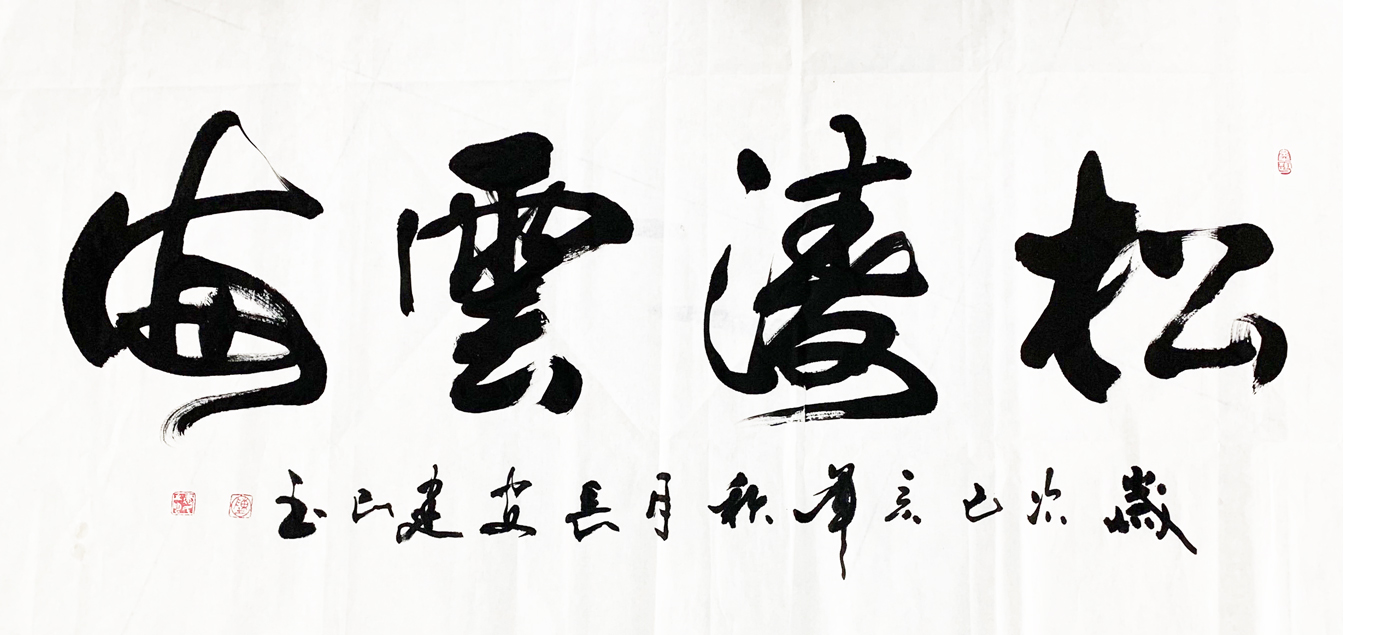 松濤雲海
歲次己亥年秋月長安建山